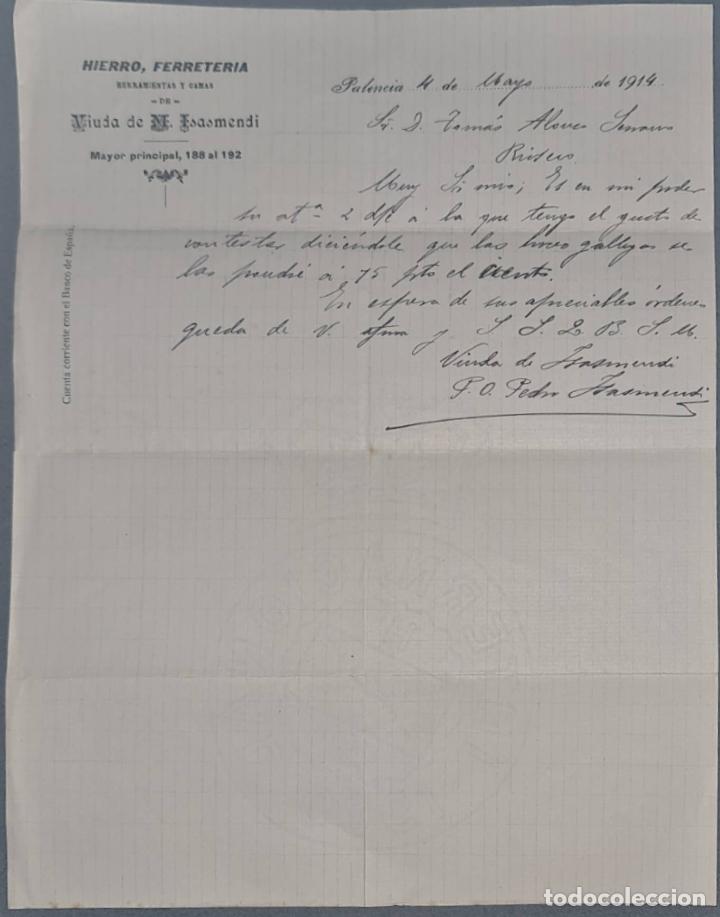 HIERRO, FERRETERIA
HERRAMIENTAS Y CAMAS
DE
Viuda de M. Isasmendi
Mayor principal, 188 al 192
Cuenta corriente con el Banco de España.
Palencia 4 de Mayo de 1914
Sr. D. Tomás Alonso
Rioseco
Muy Sr mio; Es en mi poder
su atª 2 d/c á la que tengo el gusto de
contestar diciéndole que las hoces gallegas se
las pondré á 75 pts el ciento.
En espera de sus apreciables órdenes
queda de V. afma y S. S. Q. B. S. M.
Viuda de Isasmendi
P. O. Pedro Isasmendi
todocoleccion